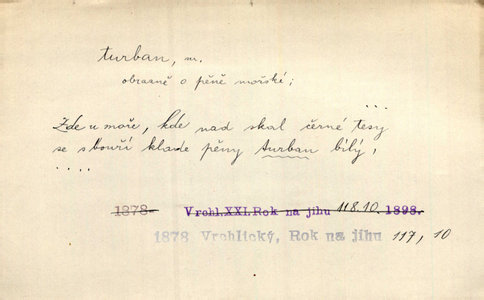 turban, m.
obrazně o pěně mořské;
...
Zde u moře, kde nad skal černé tesy
se sbouří klade pěny turban bílý,
....
1878- Vrchl.XXI.Rok na jihu 118.10. 1898.
1878 Vrchlický, Rok na jihu 117, 10